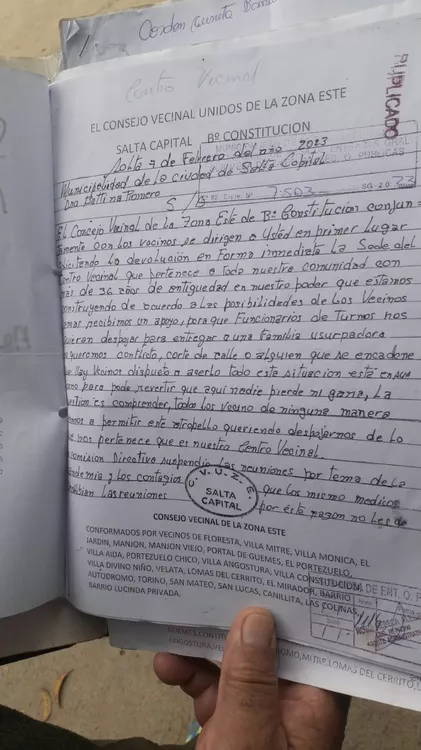 Centro Vecinal
DUPLICADO
EL CONSEJO VECINAL UNIDOS DE LA ZONA ESTE
SALTA CAPITAL Bº CONSTITUCION
Salta 7 de Febrero del año 2023
Municipalidad de la ciudad de Salta Capital
Dra Bettina Romero
S / 7503 SG-20 23
El Concejo Vecinal de la Zona Este de Bº Constitucion conjun=
tamente con los vecinos se dirigen a Usted en primer Lugar
solicitando la devolución en forma inmediata la Sede del
Centro Vecinal que pertenece a toda nuestra comunidad con
mas de 36 años de antiguedad en nuestro poder que estamos
construyendo de acuerdo a las posibilidades de los Vecinos
Jamas recibimos un apoyo, para que Funcionarios de Turnos nos
quieran despojar para entregar a una familia usurpadora
queremos conticto, corte de calle o alguien que se encadene
Hay Vecinos dispueto a aserlo todo esta situacion está en sus
mano para pode revertir que aqui nadie pierde ni gana, La
question es comprender, todos los Vecino de ninguna manera
vamos a permitir este atropello queriendo despojarnos de lo
que nos pertenece que es nuestro Centro Vecinal.
Comision Directiva suspendio las reuniones por tema de la
pandemia y los contagios que los mismo medicos
prohibian las reuniones por esta razon no les da
C.V.U.Z.E.
SALTA
CAPITAL
CONSEJO VECINAL DE LA ZONA ESTE
CONFORMADOS POR VECINOS DE FLORESTA, VILLA MITRE, VILLA MONICA, EL
JARDIN, MANJON, MANJON VIEJO, PORTAL DE GUEMES, EL PORTEZUELO,
VILLA AIDA, PORTEZUELO CHICO, VILLA ANGOSTURA, VILLA CONSTITUCION
VILLA DIVINO NIÑO, VELATA, LOMAS DEL CERRITO, EL MIRADOR, BARRIO
AUTODROMO, TORINO, SAN MATEO, SAN LUCAS, CANILLITA, LAS COLINAS,
BARRIO LUCINDA PRIVADA.